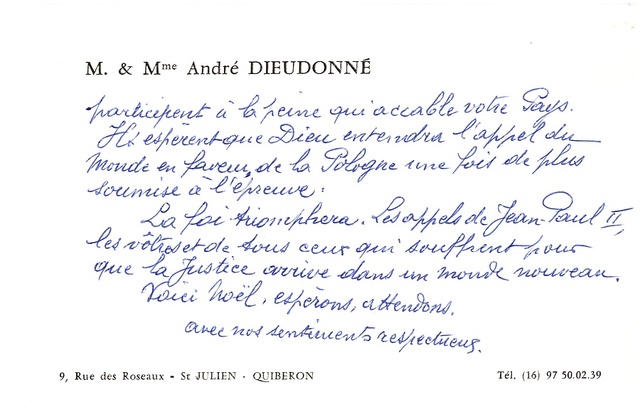 M. & Mme André DIEUDONNÉ
participent à la peine qui accable votre Pays.
Ils espèrent que Dieu entendra l'appel du
Monde en faveur de la Pologne une fois de plus
soumise à l'épreuve.
La foi triomphera. Les appels de Jean-Paul II,
les vôtres et de tous ceux qui souffrent pour
que la Justice arrive dans un monde nouveau.
Voici Noël, espérons, attendons.
avec nos sentiments respectueux.
9, Rue des Roseaux - St JULIEN - QUIBERON
Tél. (16) 97 50.02.39